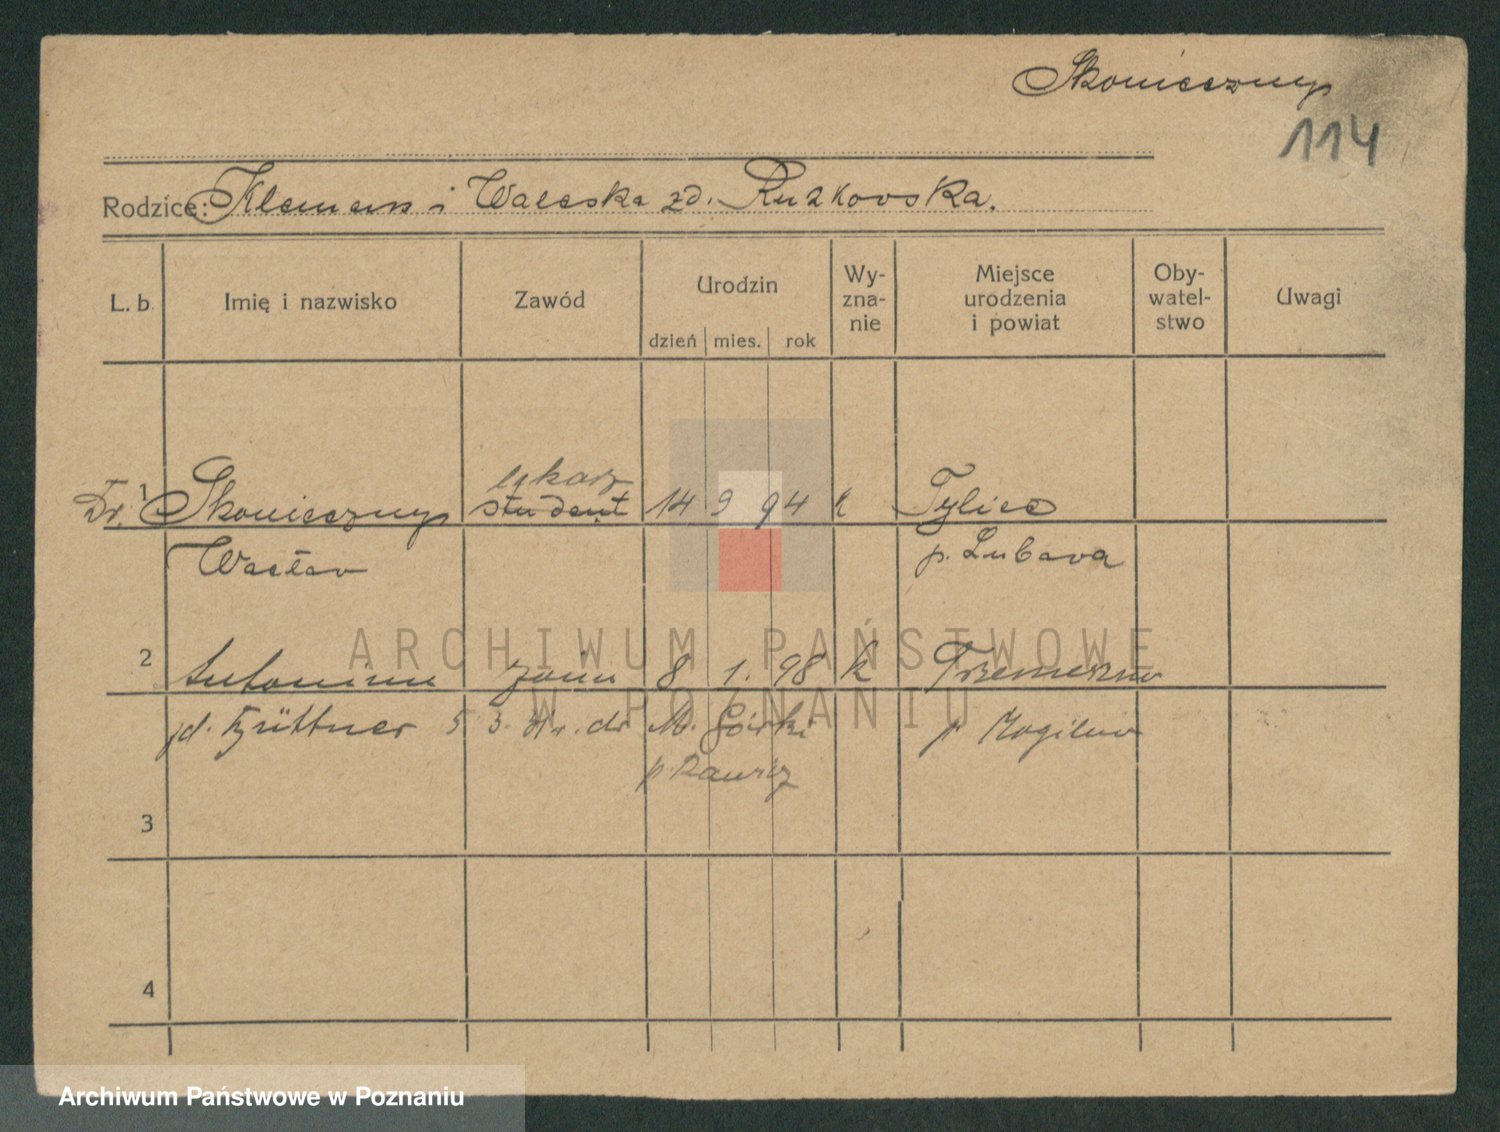 Skonieczny
114
Rodzice: Klemens i Waleska zd. Ruzkovska.
L. b. Imię i nazwisko Zawód Urodzin dzień mies. rok Wy-zna-nie Miejsce urodzenia i powiat Oby-watel-stwo Uwagi
lekarz
Dr. 1 Skonieczny student 14 9 94 k Tylice
Wacław p. Lubava
2 Antonina żona 8 1. 98 k Trzemeszno
zd. 5 3. M. Górki p Mogilno
p Rawicz
3
4
ARCHIWUM PAŃSTWOWE
W POZNANIU
Archiwum Państwowe w Poznaniu